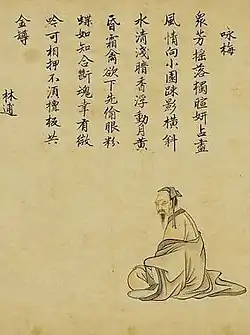 咏梅
衆芳摇落獨暄妍占盡
風情向小園疎影橫斜
水清淺暗香浮動月黄
昏霜禽欲下先偷眼粉
蝶如知合斷魂幸有微
吟可相狎不須檀板共
金罇
林逋